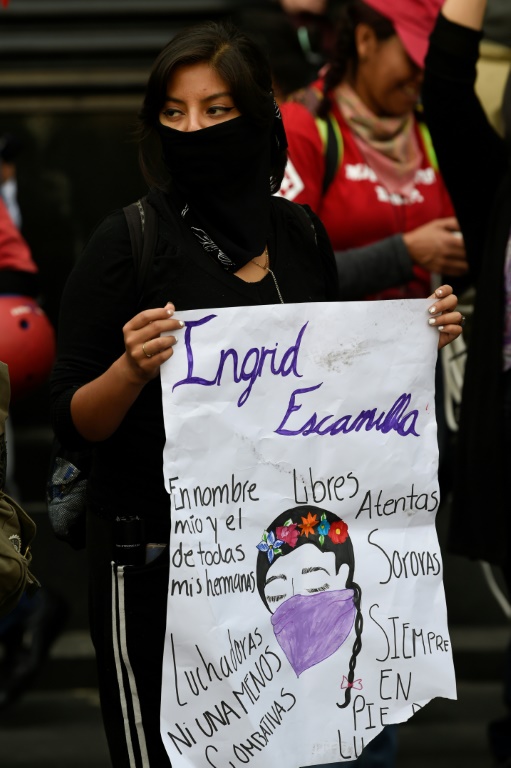 Ingrid
Escamilla
En nombre
mio y el
de todas
mis hermanas
Libres
Atentas
Sororas
Siempre
EN
PIE
Luchadoras
Ni una menos
Combativas